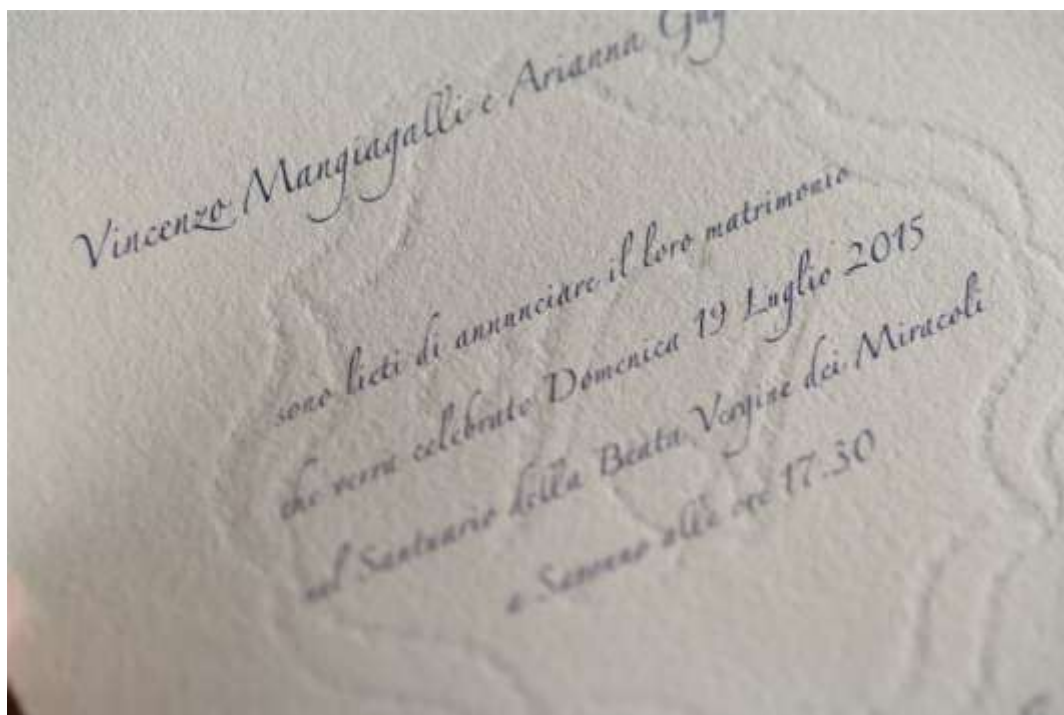 Vincenzo Mangiagalli e Arianna
sono lieti di annunciare il loro matrimonio
che verrà celebrato Domenica 19 Luglio 2015
nel Santuario della Beata Vergine dei Miracoli
a Saronno alle ore 17.30